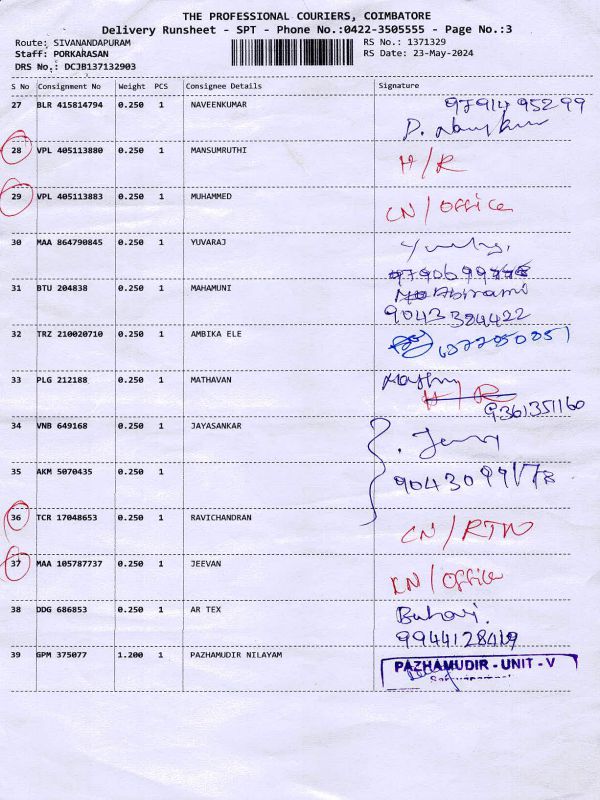 THE PROFESSIONAL COURIERS, COIMBATORE
Delivery Runsheet - SPT - Phone No.:0422-3505555 - Page No.:3
Route: SIVANANDAPURAM
RS No.: 1371329
Staff: PORKARASAN
RS Date: 23-May-2024
DRS No.: DCJB137132903
S No Consignment No Weight PCS Consignee Details Signature
27 BLR 415814794 0.250 1 NAVEENKUMAR 9791495299
28 VPL 405113880 0.250 1 MANSUMRUTHI H/R
29 VPL 405113883 0.250 1 MUHAMMED CN/office
30 MAA 864790845 0.250 1 YUVARAJ
31 BTU 204838 0.250 1 MAHAMUNI Abirami
9043384422
32 TRZ 210020710 0.250 1 AMBIKA ELE
33 PLG 212188 0.250 1 MATHAVAN H/R
9361351160
34 VNB 649168 0.250 1 JAYASANKAR
35 AKM 5070435 0.250 1
36 TCR 17048653 0.250 1 RAVICHANDRAN CN/RTN
37 MAA 105787737 0.250 1 JEEVAN CN/office
38 DDG 686853 0.250 1 AR TEX
9944128419
39 GPM 375077 1.200 1 PAZHAMUDIR NILAYAM PAZHAMUDIR - UNIT - V